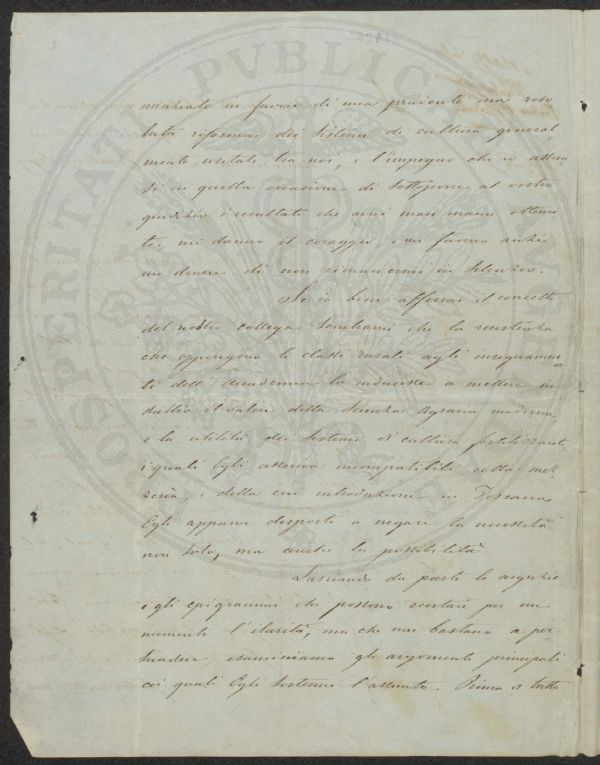 nunziato in favore di una prudente ma riso-
luta riforma dei sistemi di cultura general-
mente usitati tra noi, e l'impegno che io assun-
si in questa occasione di sottoporre al vostro
giudizio i resultati che avrei man mano ottenu-
ti, mi danno il coraggio, e mi fanno anzi
un dovere di non rimanermi in silenzio.
Se io bene afferrai il concetto
del nostro collega sembrami che la resistenza
che oppongono le classi rurali agli insegnamen-
ti dell'Accademia lo inducesse a mettere in
dubbio il valore della Scienza Agraria moderna,
e la utilità dei sistemi di cultura fertilizzante,
i quali Egli asseriva incompatibili colla mez-
zeria, e della cui introduzione in Toscana
Egli apparve disposto a negare la necessità
non solo, ma anche la possibilità
Lasciando da parte le arguzie
e gli epigrammi che possono eccitare per un
momento l'ilarità, ma che non bastano a per-
suadere esaminiamo gli argomenti principali
coi quali Egli sostenne l'assunto. Prima di tutto
PROSPERITATI PUBLICAE